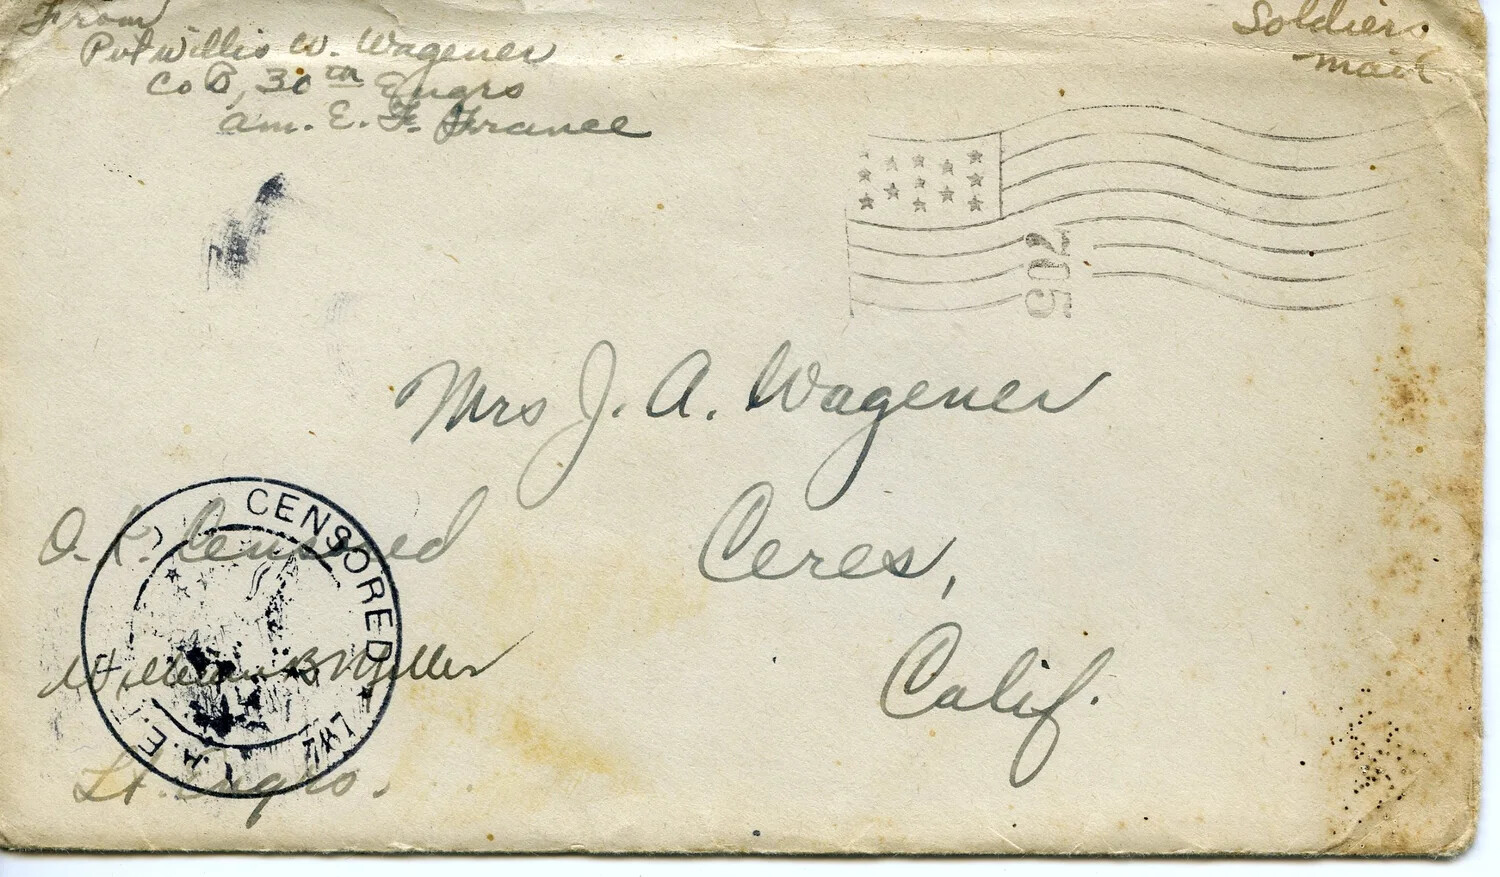 From
Pvt Willis W. Wagener
Co B, 30th Engrs
Am. E. F. France
Soldiers
mail
705
Mrs J. A. Wagener
Ceres,
Calif.
O.K. Censored
William B Miller
Lt. Engrs.
CENSORED
A.E.F.